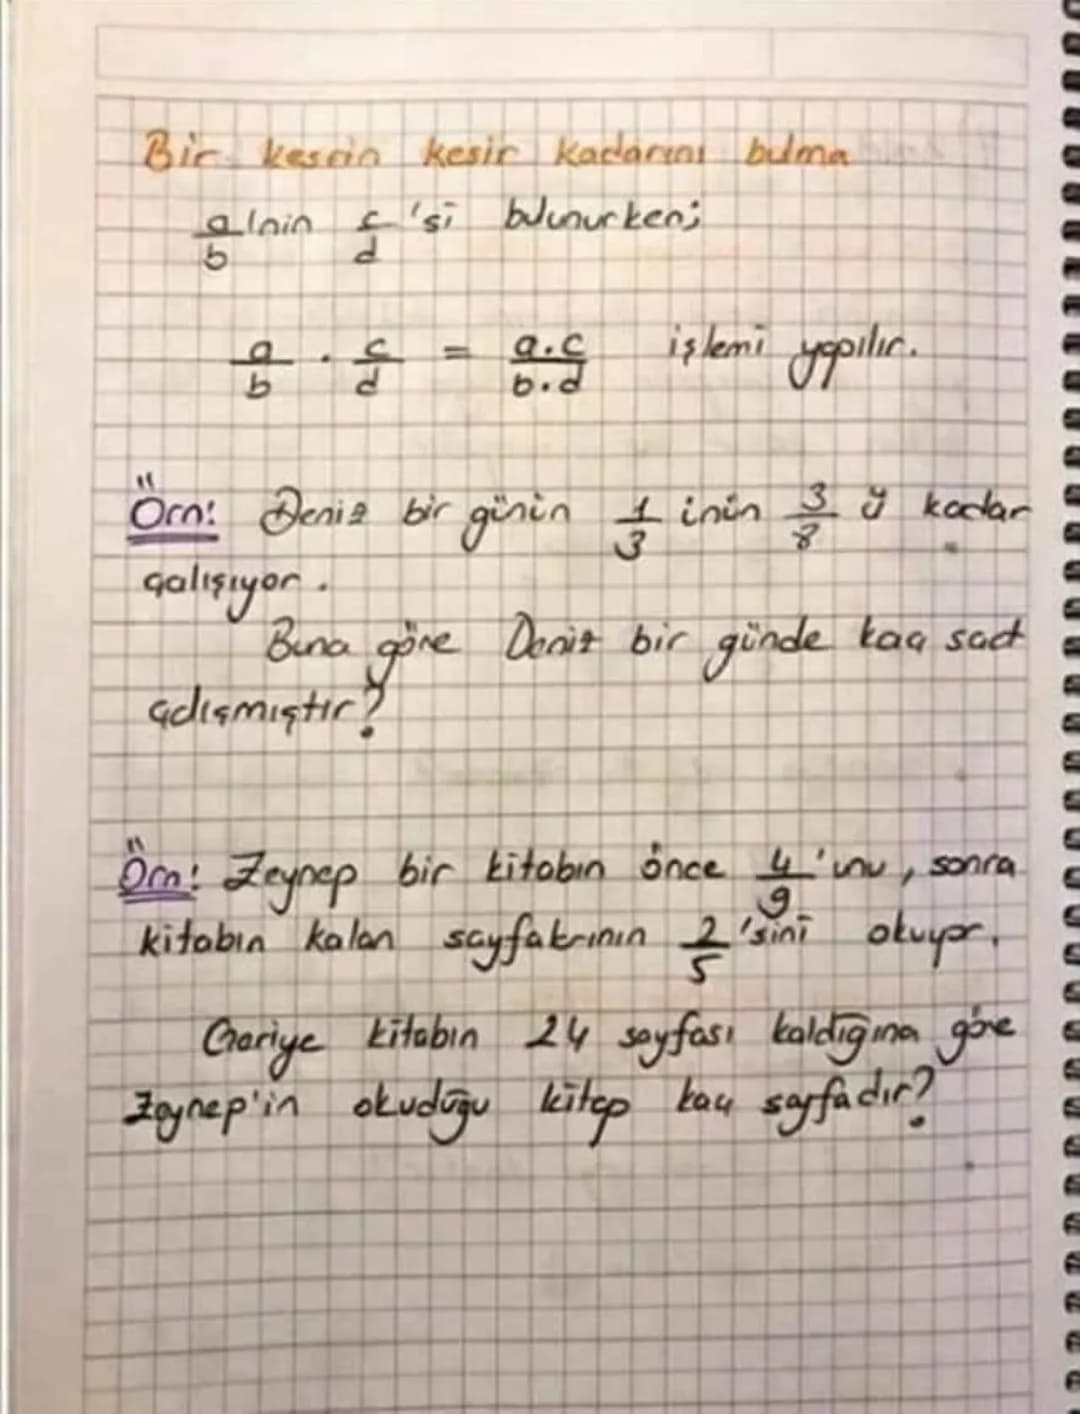 Bir kesrin kesir kadarını bulma
a/b'nin c/d 'si bulunurken;
a/b . c/d = a.c/b.d işlemi yapılır.
Örn: Deniz bir günün 1/3 inin 3/8 ü kadar
çalışıyor.
Buna göre Deniz bir günde kaç saat
çalışmıştır?
Örn: Zeynep bir kitabın önce 4/9 'unu, sonra
kitabın kalan sayfalarının 2/5 'sini okuyor.
Geriye kitabın 24 sayfası kaldığına göre
Zeynep'in okuduğu kitap kaç sayfadır?